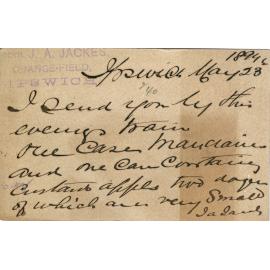 J. A. JACKES,
ORANGE-FIELD,
IPSWICH
1894
Ipswich May 28
I send you by this
evenings train
one Case Mandarins
and one Case Containing
Custard apples two dozen
of which are very Small